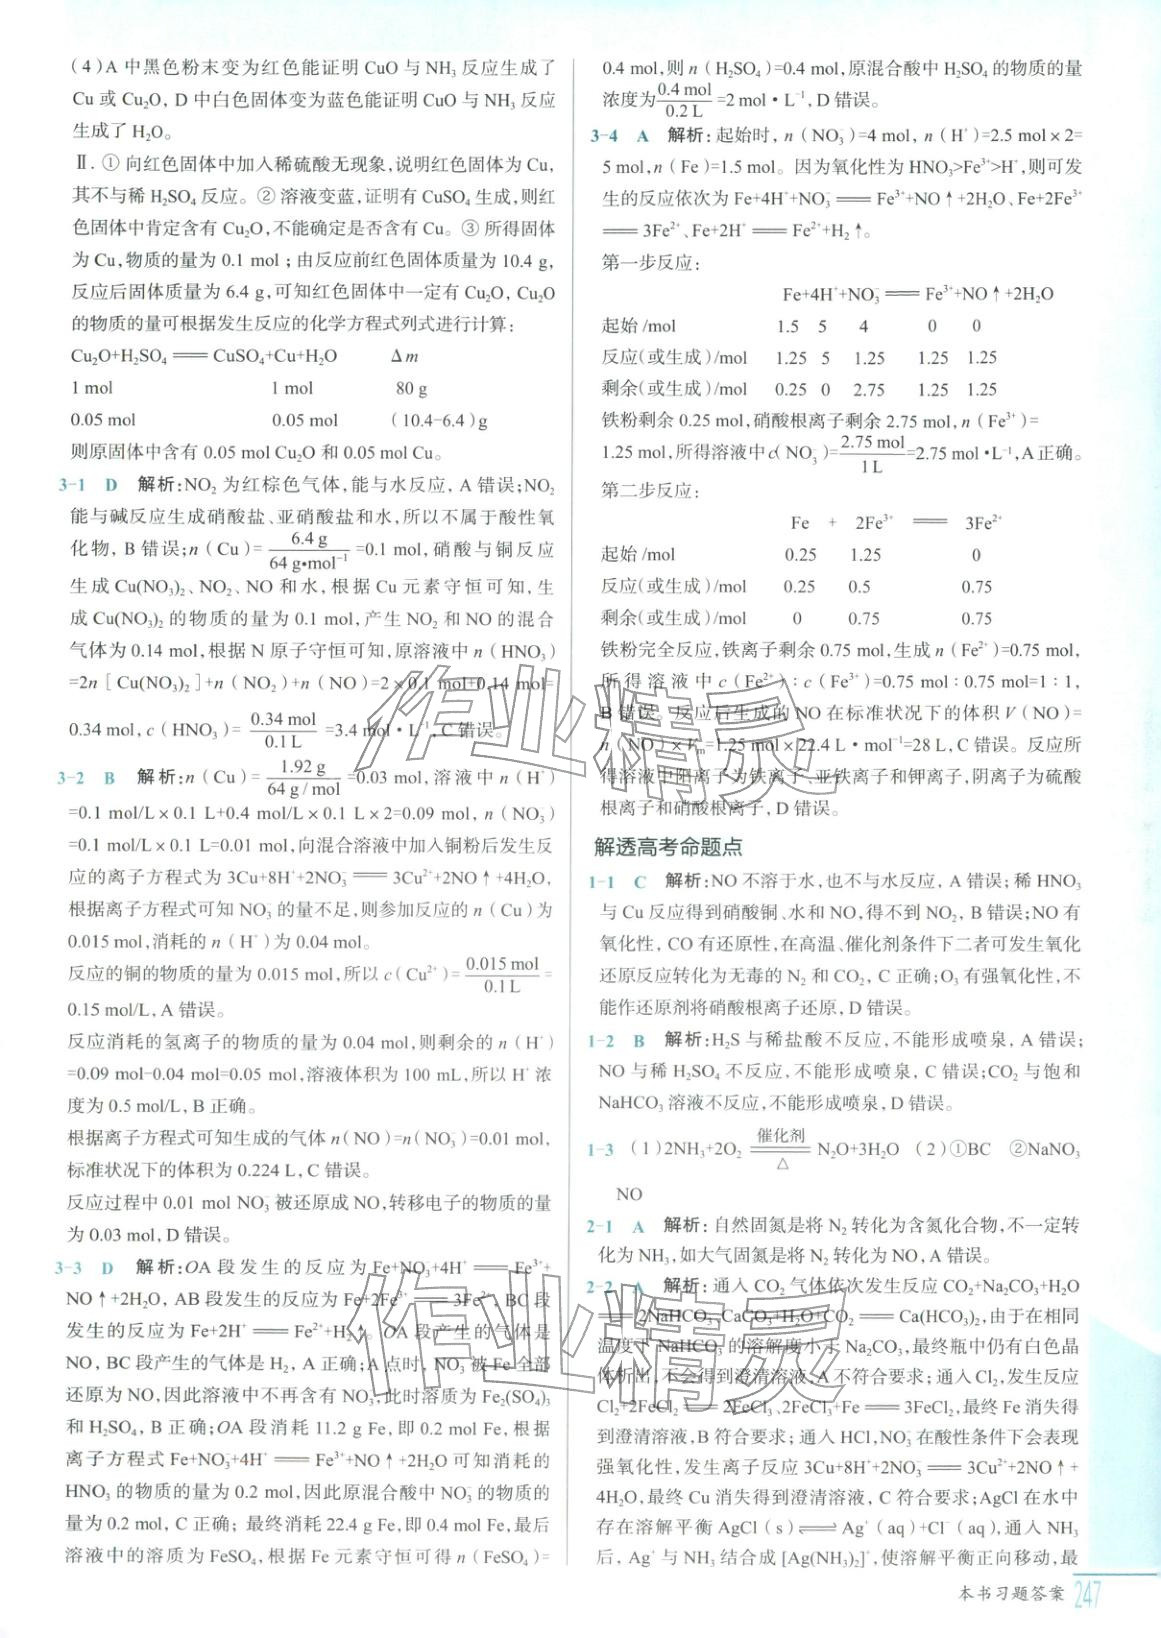 (4)A 中黑色粉末变为红色能证明 CuO 与 NH₃ 反应生成了
Cu 或 Cu₂O, D 中白色固体变为蓝色能证明 CuO 与 NH₃ 反应
生成了 H₂O。
Ⅱ. ① 向红色固体中加入稀硫酸无现象,说明红色固体为 Cu,
其不与稀 H₂SO₄ 反应。② 溶液变蓝,证明有 CuSO₄ 生成,则红
色固体中肯定含有 Cu₂O,不能确定是否含有 Cu。③ 所得固体
为 Cu,物质的量为 0.1 mol ; 由反应前红色固体质量为 10.4 g,
反应后固体质量为 6.4 g,可知红色固体中一定有 Cu₂O, Cu₂O
的物质的量可根据发生反应的化学方程式列式进行计算:
Cu₂O+H₂SO₄ == CuSO₄+Cu+H₂O Δm
1 mol 1 mol 80 g
0.05 mol 0.05 mol (10.4-6.4)g
则原固体中含有 0.05 mol Cu₂O 和 0.05 mol Cu。
3-1 D 解析:NO₂ 为红棕色气体,能与水反应, A 错误;NO₂
能与碱反应生成硝酸盐、亚硝酸盐和水,所以不属于酸性氧
化物, B 错误;n(Cu)= 6.4 g / 64 g•mol⁻¹ =0.1 mol,硝酸与铜反应
生成 Cu(NO₃)₂、NO₂、NO 和水,根据 Cu 元素守恒可知,生
成 Cu(NO₃)₂ 的物质的量为 0.1 mol,产生 NO₂ 和 NO 的混合
气体为 0.14 mol,根据 N 原子守恒可知,原溶液中 n(HNO₃)
=2n[Cu(NO₃)₂]+n(NO₂)+n(NO)=2×0.1 mol+0.14 mol=
0.34 mol, c(HNO₃)= 0.34 mol / 0.1 L =3.4 mol·L⁻¹, C 错误。
3-2 B 解析:n(Cu)= 1.92 g / 64 g/mol =0.03 mol,溶液中 n(H⁺)
=0.1 mol/L×0.1 L+0.4 mol/L×0.1 L×2=0.09 mol, n(NO₃⁻)
=0.1 mol/L×0.1 L=0.01 mol,向混合溶液中加入铜粉后发生反
应的离子方程式为 3Cu+8H⁺+2NO₃⁻ == 3Cu²⁺+2NO↑+4H₂O,
根据离子方程式可知 NO₃⁻ 的量不足,则参加反应的 n(Cu)为
0.015 mol,消耗的 n(H⁺)为 0.04 mol。
反应的铜的物质的量为 0.015 mol,所以 c(Cu²⁺)= 0.015 mol / 0.1 L =
0.15 mol/L, A 错误。
反应消耗的氢离子的物质的量为 0.04 mol,则剩余的 n(H⁺)
=0.09 mol-0.04 mol=0.05 mol,溶液体积为 100 mL,所以 H⁺ 浓
度为 0.5 mol/L, B 正确。
根据离子方程式可知生成的气体 n(NO)=n(NO₃⁻)=0.01 mol,
标准状况下的体积为 0.224 L, C 错误。
反应过程中 0.01 mol NO₃⁻ 被还原成 NO,转移电子的物质的量
为 0.03 mol, D 错误。
3-3 D 解析:OA 段发生的反应为 Fe+NO₃⁻+4H⁺ == Fe³⁺+
NO↑+2H₂O, AB 段发生的反应为 Fe+2Fe³⁺ == 3Fe²⁺, BC 段
发生的反应为 Fe+2H⁺ == Fe²⁺+H₂↑。OA 段产生的气体是
NO, BC 段产生的气体是 H₂, A 正确;A 点时, NO₃⁻ 被 Fe 全部
还原为 NO,因此溶液中不再含有 NO₃⁻,此时溶质为 Fe₂(SO₄)₃
和 H₂SO₄, B 正确;OA 段消耗 11.2 g Fe,即 0.2 mol Fe,根据
离子方程式 Fe+NO₃⁻+4H⁺ == Fe³⁺+NO↑+2H₂O 可知消耗的
HNO₃ 的物质的量为 0.2 mol,因此原混合酸中 NO₃⁻ 的物质的
量为 0.2 mol, C 正确; 最终消耗 22.4 g Fe,即 0.4 mol Fe,最后
溶液中的溶质为 FeSO₄,根据 Fe 元素守恒可得 n(FeSO₄)=
0.4 mol,则 n(H₂SO₄)=0.4 mol,原混合酸中 H₂SO₄ 的物质的量
浓度为 0.4 mol / 0.2 L =2 mol·L⁻¹, D 错误。
3-4 A 解析:起始时, n(NO₃⁻)=4 mol, n(H⁺)=2.5 mol×2=
5 mol, n(Fe)=1.5 mol。因为氧化性为 HNO₃>Fe³⁺>H⁺,则可发
生的反应依次为 Fe+4H⁺+NO₃⁻ == Fe³⁺+NO↑+2H₂O、Fe+2Fe³⁺
== 3Fe²⁺、Fe+2H⁺ == Fe²⁺+H₂↑。
第一步反应:
Fe+4H⁺+NO₃⁻ == Fe³⁺+NO↑+2H₂O
起始/mol 1.5 5 4 0 0
反应(或生成)/mol 1.25 5 1.25 1.25 1.25
剩余(或生成)/mol 0.25 0 2.75 1.25 1.25
铁粉剩余 0.25 mol,硝酸根离子剩余 2.75 mol, n(Fe³⁺)=
1.25 mol,所得溶液中 c(NO₃⁻)= 2.75 mol / 1 L =2.75 mol·L⁻¹, A 正确。
第二步反应:
Fe + 2Fe³⁺ == 3Fe²⁺
起始/mol 0.25 1.25 0
反应(或生成)/mol 0.25 0.5 0.75
剩余(或生成)/mol 0 0.75 0.75
铁粉完全反应,铁离子剩余 0.75 mol,生成 n(Fe²⁺)=0.75 mol,
所得溶液中 c(Fe²⁺)∶c(Fe³⁺)=0.75 mol∶0.75 mol=1∶1,
B 错误。反应后生成的 NO 在标准状况下的体积 V(NO)=
n(NO)×Vₘ=1.25 mol×22.4 L·mol⁻¹=28 L, C 错误。反应所
得溶液中阳离子为铁离子、亚铁离子和钾离子,阴离子为硫酸
根离子和硝酸根离子, D 错误。
解透高考命题点
1-1 C 解析:NO 不溶于水,也不与水反应, A 错误;稀 HNO₃
与 Cu 反应得到硝酸铜、水和 NO,得不到 NO₂, B 错误;NO 有
氧化性, CO 有还原性,在高温、催化剂条件下二者可发生氧化
还原反应转化为无毒的 N₂ 和 CO₂, C 正确;O₃ 有强氧化性,不
能作还原剂将硝酸根离子还原, D 错误。
1-2 B 解析:H₂S 与稀盐酸不反应,不能形成喷泉, A 错误;
NO 与稀 H₂SO₄ 不反应,不能形成喷泉, C 错误;CO₂ 与饱和
NaHCO₃ 溶液不反应,不能形成喷泉, D 错误。
1-3 (1)2NH₃+2O₂ =催化剂/△= N₂O+3H₂O (2)①BC ②NaNO₃
NO
2-1 A 解析:自然固氮是将 N₂ 转化为含氮化合物,不一定转
化为 NH₃,如大气固氮是将 N₂ 转化为 NO, A 错误。
2-2 A 解析:通入 CO₂ 气体依次发生反应 CO₂+Na₂CO₃+H₂O
== 2NaHCO₃、CaCO₃+H₂O+CO₂ == Ca(HCO₃)₂,由于在相同
温度下 NaHCO₃ 的溶解度小于 Na₂CO₃,最终瓶中仍有白色晶
体析出,不会得到澄清溶液, A 不符合要求;通入 Cl₂,发生反应
Cl₂+2FeCl₂ == 2FeCl₃、2FeCl₃+Fe == 3FeCl₂,最终 Fe 消失得
到澄清溶液, B 符合要求;通入 HCl, NO₃⁻ 在酸性条件下会表现
强氧化性,发生离子反应 3Cu+8H⁺+2NO₃⁻ == 3Cu²⁺+2NO↑+
4H₂O,最终 Cu 消失得到澄清溶液, C 符合要求;AgCl 在水中
存在溶解平衡 AgCl(s) ⇌ Ag⁺(aq)+Cl⁻(aq),通入 NH₃
后, Ag⁺ 与 NH₃ 结合成 [Ag(NH₃)₂]⁺,使溶解平衡正向移动,最
本书习题答案 247
作业精灵
作业精灵